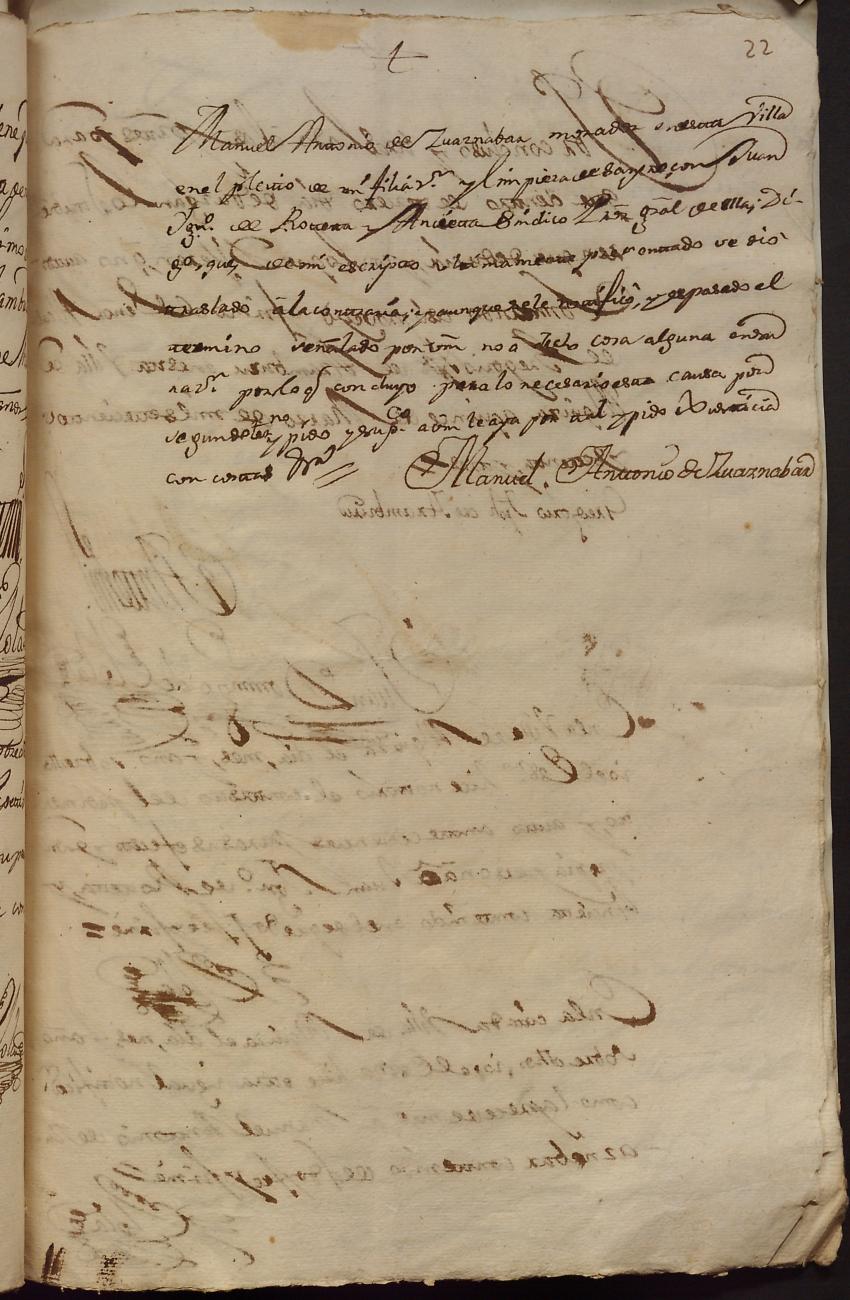 22
Manuel Antonio de Zuaznabar morador en esta Villa
en el pleito de mi filiaz.n y limpieza de sangre, con Juan
Ign.o de Rotetta y Ancieta Síndico Pror gral de ella; Di-
go, que de mi escripto ultimamente presentado se dio
traslado à la contraria; y aunque se le notificó, y es pasado el
termino señalado por vm no a dicho cosa alguna en su
raz.n por lo q.e concluyo para lo necesario esta causa por
y pido y sup.co a vm le aya por tal y pido Justicia
con costas &ra
Manuel Antonio de Zuaznabar